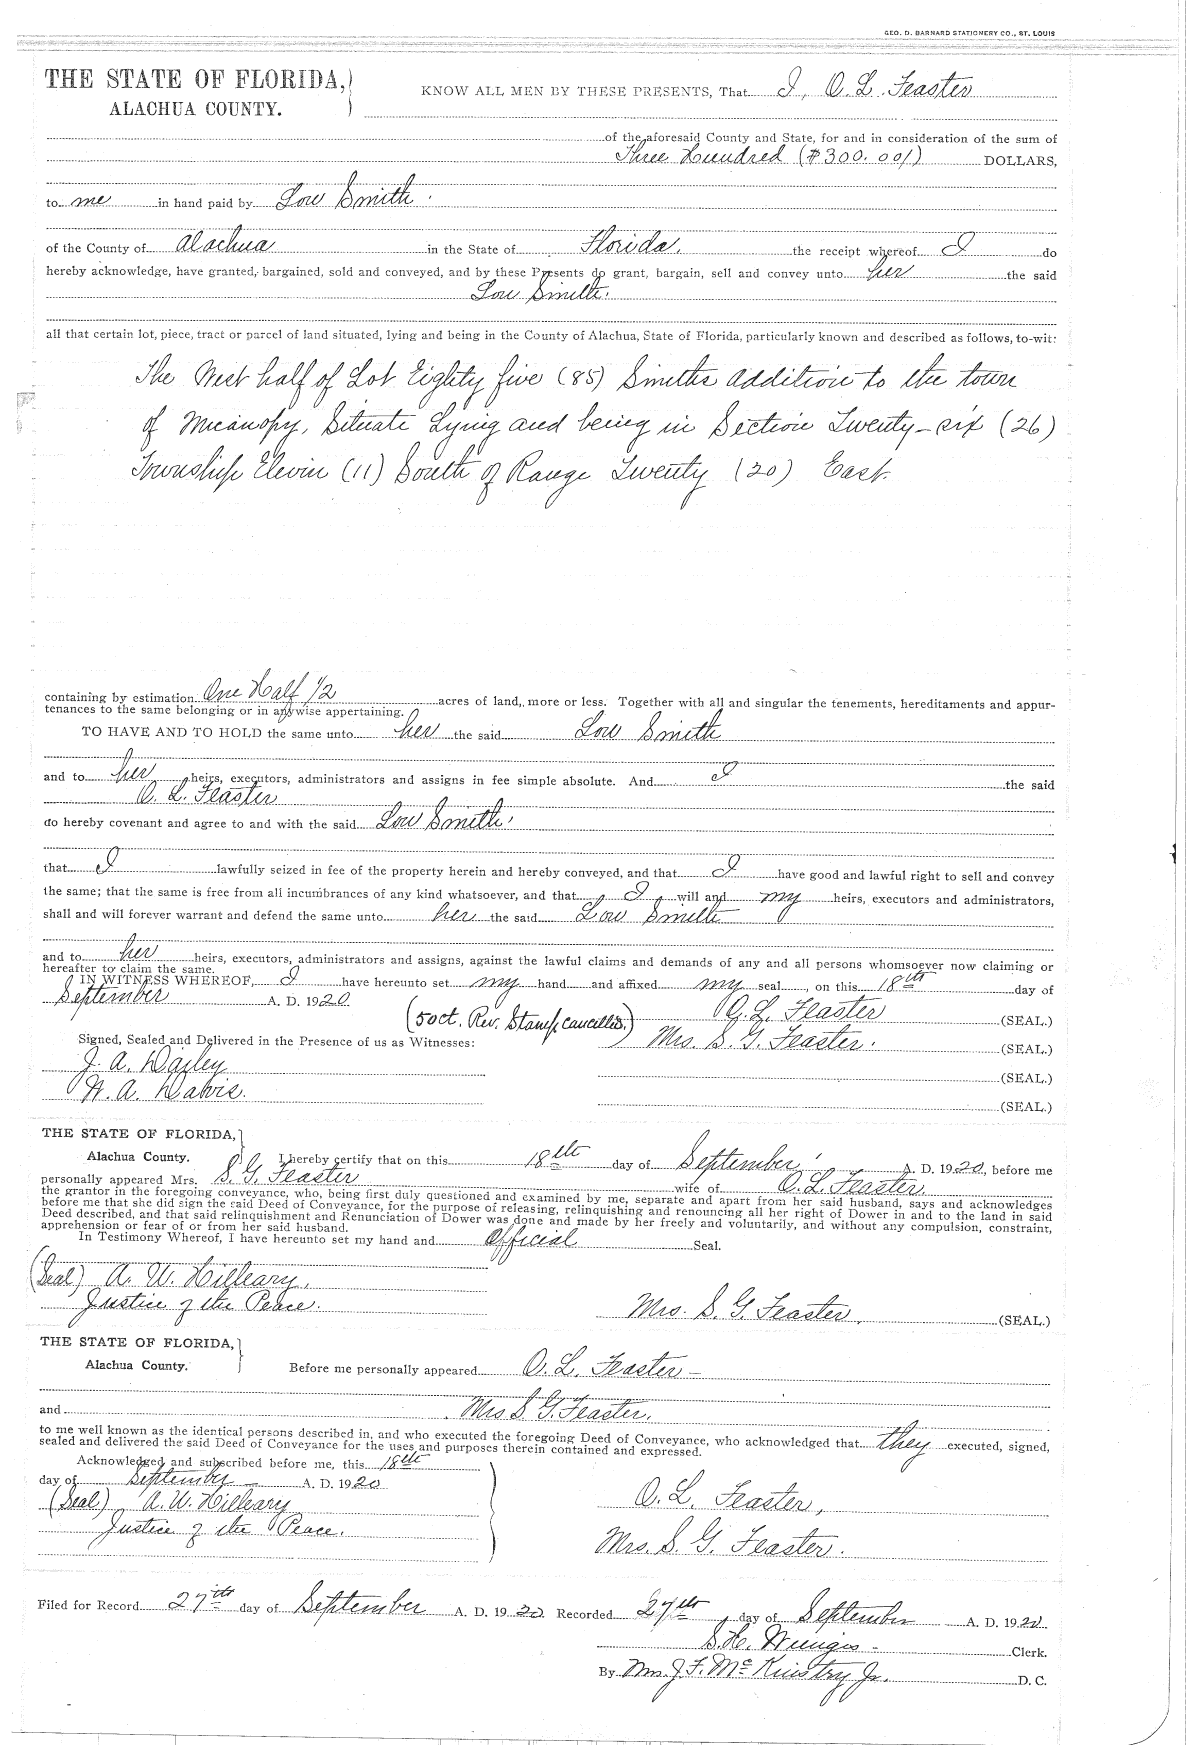 GEO. D. BARNARD STATIONERY CO., ST. LOUIS
THE STATE OF FLORIDA,
ALACHUA COUNTY.
KNOW ALL MEN BY THESE PRESENTS, That I, O. L. Feaster
of the aforesaid County and State, for and in consideration of the sum of
Three Hundred ($300.00/) DOLLARS,
to me in hand paid by Low Smith.
of the County of Alachua in the State of Florida, the receipt whereof I do
hereby acknowledge, have granted, bargained, sold and conveyed, and by these Presents do grant, bargain, sell and convey unto her the said
Low Smith.
all that certain lot, piece, tract or parcel of land situated, lying and being in the County of Alachua, State of Florida, particularly known and described as follows, to-wit:
The West half of Lot Eighty five (85) Smiths addition to the town
of Micanopy, Situate Lying and being in Section Twenty-six (26)
Township Elevin (11) South of Range Twenty (20) East.
containing by estimation One Half 1/2 acres of land, more or less. Together with all and singular the tenements, hereditaments and appur-
tenances to the same belonging or in anywise appertaining.
TO HAVE AND TO HOLD the same unto her the said Low Smith
and to her heirs, executors, administrators and assigns in fee simple absolute. And I the said
O. L. Feaster
do hereby covenant and agree to and with the said Low Smith.
that I lawfully seized in fee of the property herein and hereby conveyed, and that I have good and lawful right to sell and convey
the same; that the same is free from all incumbrances of any kind whatsoever, and that I will and my heirs, executors and administrators,
shall and will forever warrant and defend the same unto her the said Low Smith
and to her heirs, executors, administrators and assigns, against the lawful claims and demands of any and all persons whomsoever now claiming or
hereafter to claim the same.
IN WITNESS WHEREOF, I have hereunto set my hand and affixed my seal, on this 18th day of
September A. D. 1920
O. L. Feaster (SEAL.)
(50ct. Rev. Stamp cancelled.)
Signed, Sealed and Delivered in the Presence of us as Witnesses: Mrs. S. G. Feaster. (SEAL.)
J. A. Dailey (SEAL.)
W. A. Davis. (SEAL.)
THE STATE OF FLORIDA,
Alachua County. I hereby certify that on this 18th day of September, A. D. 1920, before me
personally appeared Mrs. S. G. Feaster wife of O. L. Feaster
the grantor in the foregoing conveyance, who, being first duly questioned and examined by me, separate and apart from her said husband, says and acknowledges
before me that she did sign the said Deed of Conveyance, for the purpose of releasing, relinquishing and renouncing all her right of Dower in and to the land in said
Deed described, and that said relinquishment and Renunciation of Dower was done and made by her freely and voluntarily, and without any compulsion, constraint,
apprehension or fear of or from her said husband.
In Testimony Whereof, I have hereunto set my hand and Official Seal.
(Seal) A. W. Hilleary,
Justice of the Peace. Mrs. S. G. Feaster, (SEAL.)
THE STATE OF FLORIDA,
Alachua County. Before me personally appeared O. L. Feaster -
and Mrs S. G. Feaster.
to me well known as the identical persons described in, and who executed the foregoing Deed of Conveyance, who acknowledged that they executed, signed,
sealed and delivered the said Deed of Conveyance for the uses and purposes therein contained and expressed.
Acknowledged and subscribed before me, this 18th
day of September A. D. 1920
(Seal) A. W. Hilleary O. L. Feaster,
Justice of the Peace. Mrs. S. G. Feaster.
Filed for Record 27th day of September A. D. 1920 Recorded 27th day of September A. D. 1920
S. H. Wienges - Clerk.
By Mrs. J. F. McKinstry Jr. D. C.